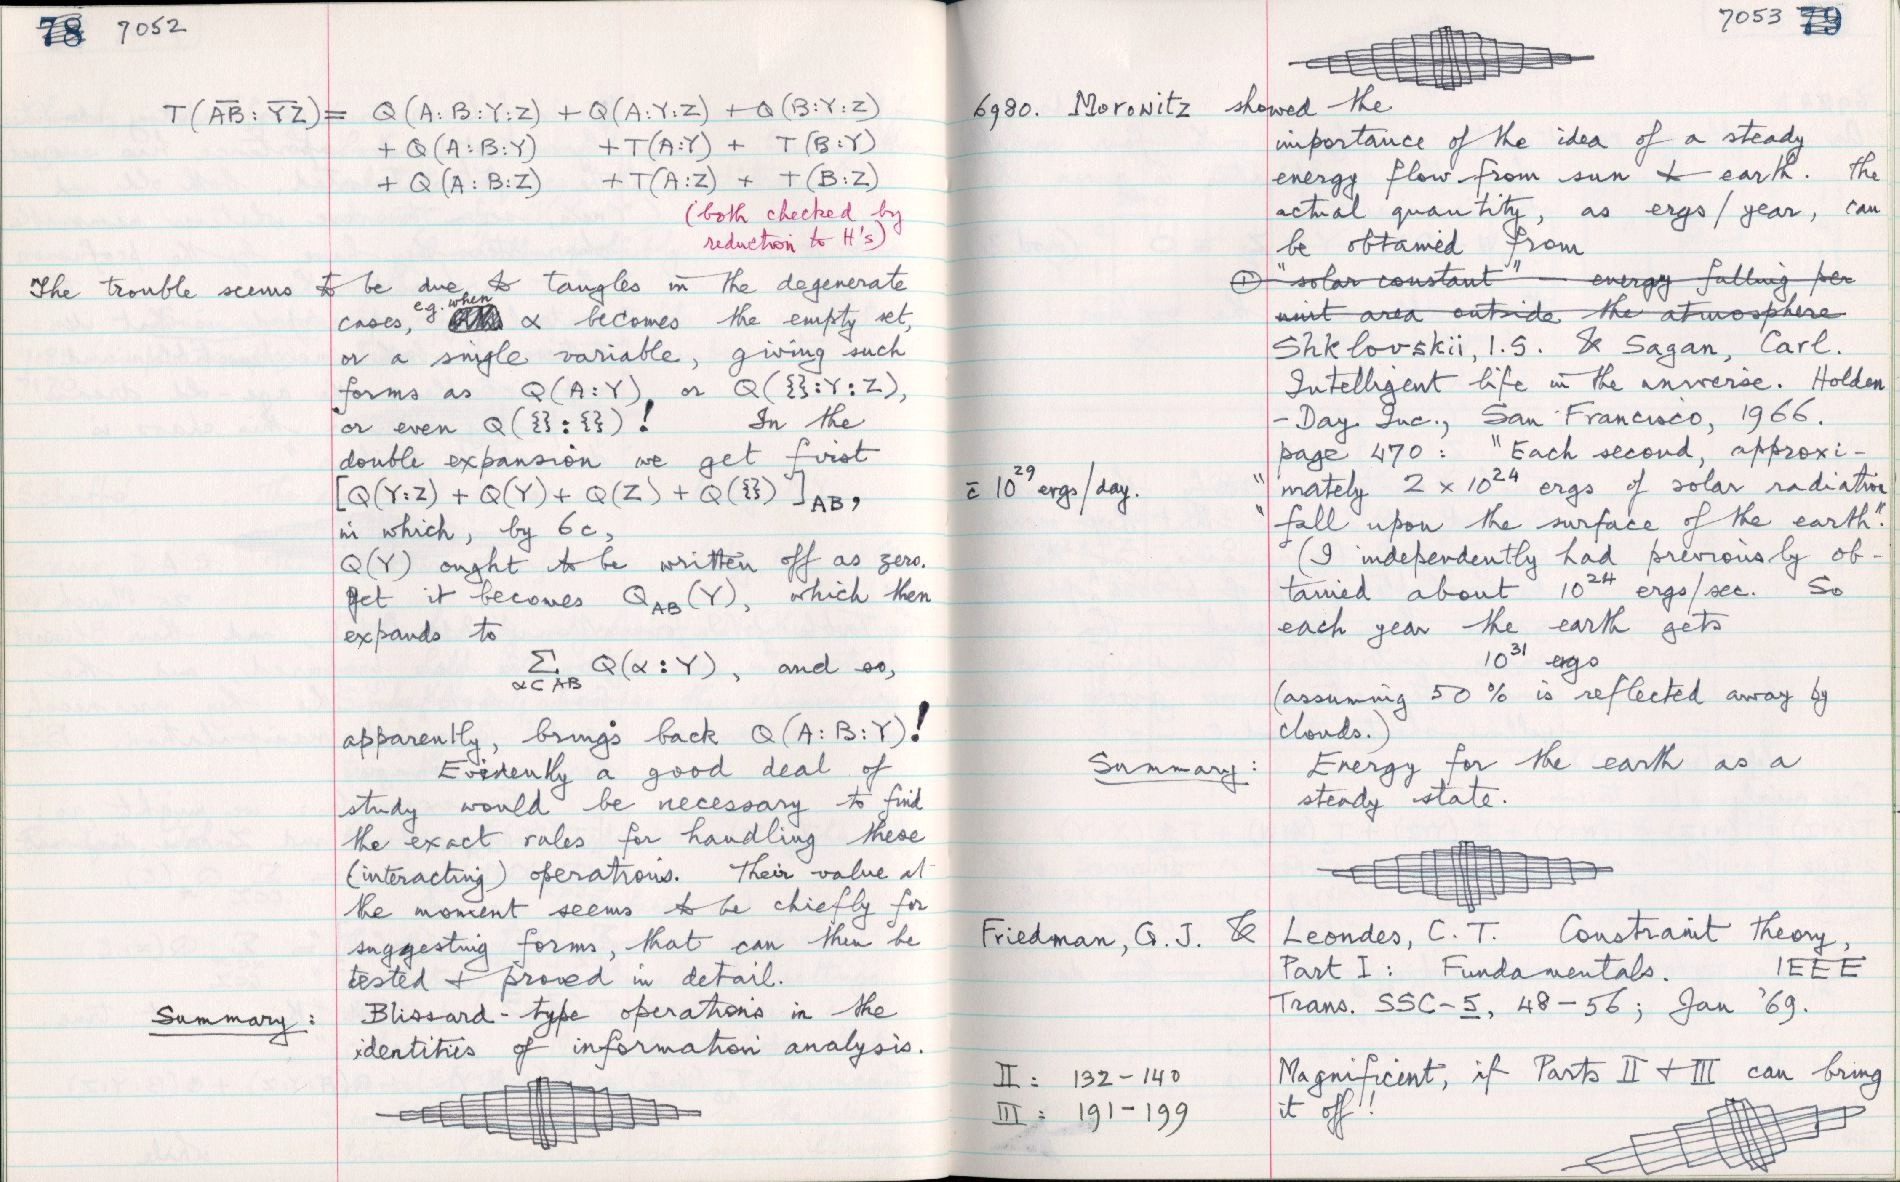 78 7052
T(A̅B̅ : Y̅Z̅) = Q(A:B:Y:Z) + Q(A:Y:Z) + Q(B:Y:Z)
+ Q(A:B:Y) + T(A:Y) + T(B:Y)
+ Q(A:B:Z) + T(A:Z) + T(B:Z)
(both checked by
reduction to H's)
The trouble seems to be due to tangles in the degenerate
cases, e.g. when α becomes the empty set,
or a single variable, giving such
forms as Q(A:Y), or Q({}:Y:Z),
or even Q({}:{})! In the
double expansion we get first
[Q(Y:Z) + Q(Y) + Q(Z) + Q({})]AB,
in which, by 6c,
Q(Y) ought to be written off as zero.
Yet it becomes QAB(Y), which then
expands to
Σ Q(α:Y), and so,
α⊂AB
apparently, brings back Q(A:B:Y)!
Evidently a good deal of
study would be necessary to find
the exact rules for handling these
(interacting) operations. Their value at
the moment seems to be chiefly for
suggesting forms, that can then be
tested & proved in detail.
Summary: Blissard-type operations in the
identities of information analysis.
7053 79
6980. Morowitz showed the
importance of the idea of a steady
energy flow from sun to earth. The
actual quantity, as ergs/year, can
be obtained from
① "solar constant" — energy falling per
unit area outside the atmosphere
Shklovskii, I.S. & Sagan, Carl.
Intelligent life in the universe. Holden
-Day Inc., San Francisco, 1966.
page 470: "Each second, approxi-
c̄ 10²⁹ ergs/day. "mately 2 x 10²⁴ ergs of solar radiation
"fall upon the surface of the earth".
(I independently had previously ob-
tained about 10²⁴ ergs/sec. So
each year the earth gets
10³¹ ergs
(assuming 50% is reflected away by
clouds.)
Summary: Energy for the earth as a
steady state.
Friedman, G.J. & Leondes, C.T. Constraint theory,
Part I: Fundamentals. IEEE
Trans. SSC-5, 48-56; Jan '69.
II: 132-140 Magnificent, if Parts II & III can bring
III: 191-199 it off!!